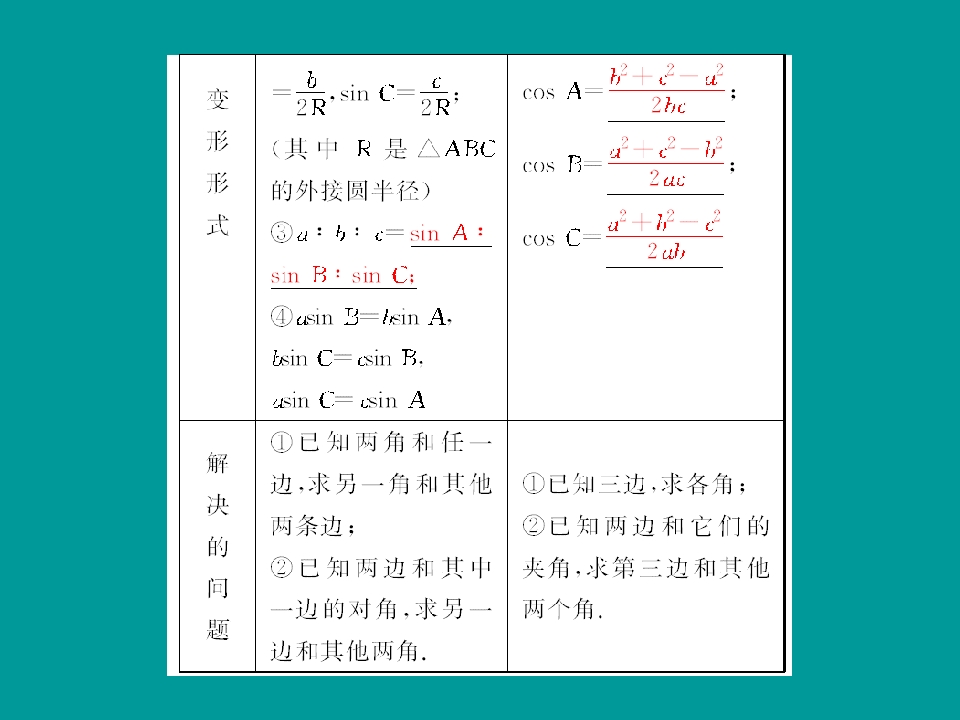 变
形
形
式
=b/2R,sin C=c/2R;
(其中 R 是 △ABC
的外接圆半径)
③a：b：c=sin A：
sin B：sin C;
④asin B=bsin A,
bsin C=csin B,
asin C=csin A
cos A=(b²+c²-a²)/2bc;
cos B=(a²+c²-b²)/2ac;
cos C=(a²+b²-c²)/2ab
解
决
的
问
题
①已知两角和任一
边,求另一角和其他
两条边;
②已知两边和其中
一边的对角,求另一
边和其他两角.
①已知三边,求各角;
②已知两边和它们的
夹角,求第三边和其他
两个角.